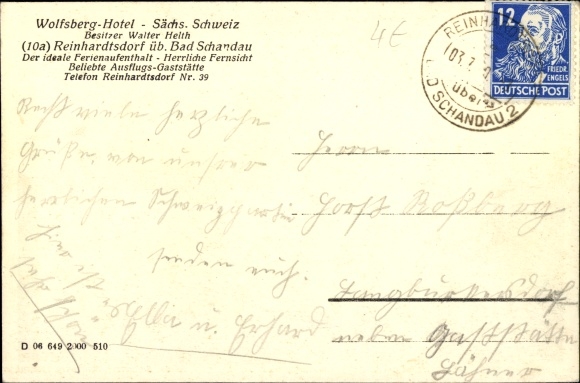 Wolfsberg-Hotel - Sächs. Schweiz
Besitzer Walter Helth
(10a) Reinhardtsdorf üb. Bad Schandau
Der ideale Ferienaufenthalt - Herrliche Fernsicht
Beliebte Ausflugs-Gaststätte
Telefon Reinhardtsdorf Nr. 39
4€
REINHARDTSDORF
über
BAD SCHANDAU 2
12
FRIEDR.
ENGELS
DEUTSCHE POST
Recht viele herzliche
Grüße von unserer
herrlichen Schweizpartie
senden euch
u. Erhard
Herrn
Horst Roßberg
Langburkersdorf
neben Gaststätte
D 06 649 2000 510